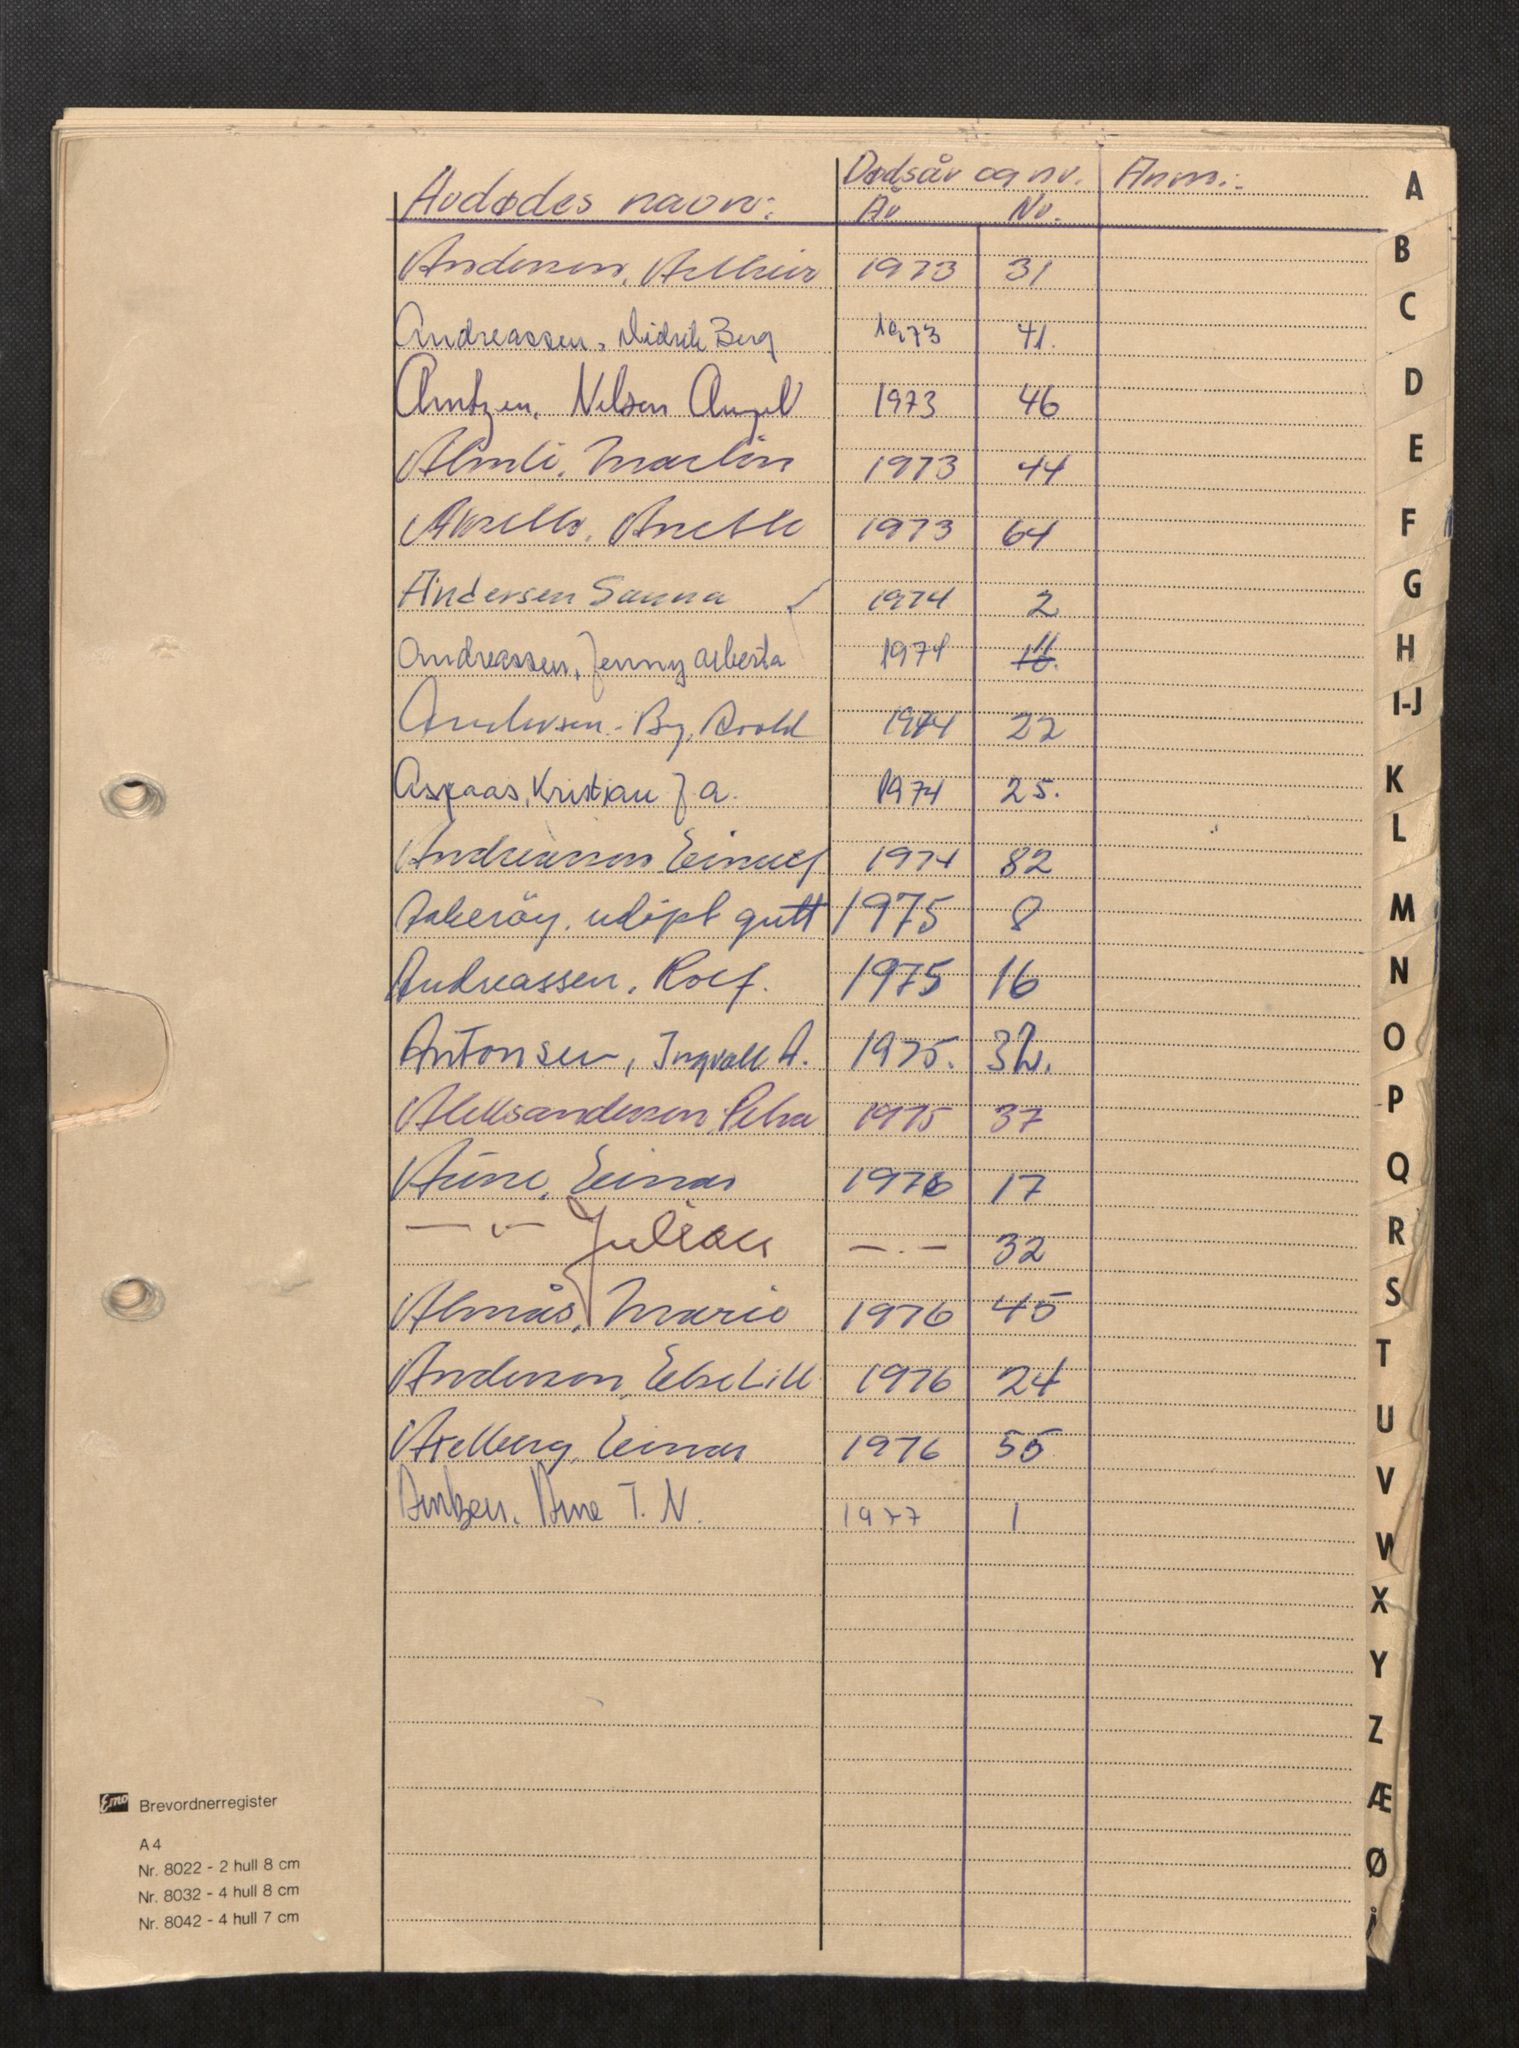 Avdødes navn: Dødsår og nr. Anm:
År Nr.
Andersen, 1973 31
Andreassen, Didrik Berg 1973 41.
Arntzen, Nelson Angel 1973 46
Almli, Martin 1973 44
Anette 1973 64
Andersen Sanna 1974 2
Andreassen, Jenny Alberta 1974 11
Andersen - By, Arold 1974 22
Aspaas, Kristian J A. 1974 25.
Andreassen 1974 82
Aakerøy, udøpt gutt 1975 8
Andreassen, Rolf. 1975 16
Antonsen, Ingvald A. 1975. 32.
Aleksandersen, Petra 1975 37
Aune, Einar 1976 17
— " — Julian — . — 32
Almås, Marie 1976 45
Andersen, Else Lill 1976 24
Axelberg, Einar 1976 55
Arntzen, Arne T. N. 1977 1
A
B
C
D
E
F
G
H
I-J
K
L
M
N
O
P
Q
R
S
T
U
V
W
X
Y
Z
Æ
Ø
Emo Brevordnerregister
A 4
Nr. 8022 - 2 hull 8 cm
Nr. 8032 - 4 hull 8 cm
Nr. 8042 - 4 hull 7 cm